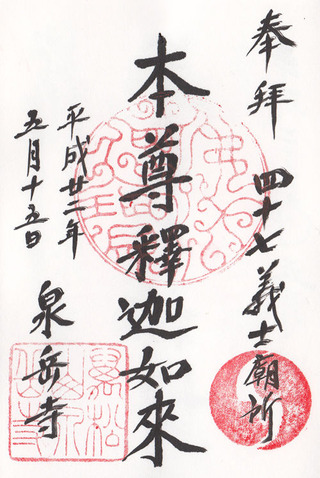 奉拝 四十七義士廟所
本尊釋迦如來
平成廿二年
五月十五日
泉岳寺